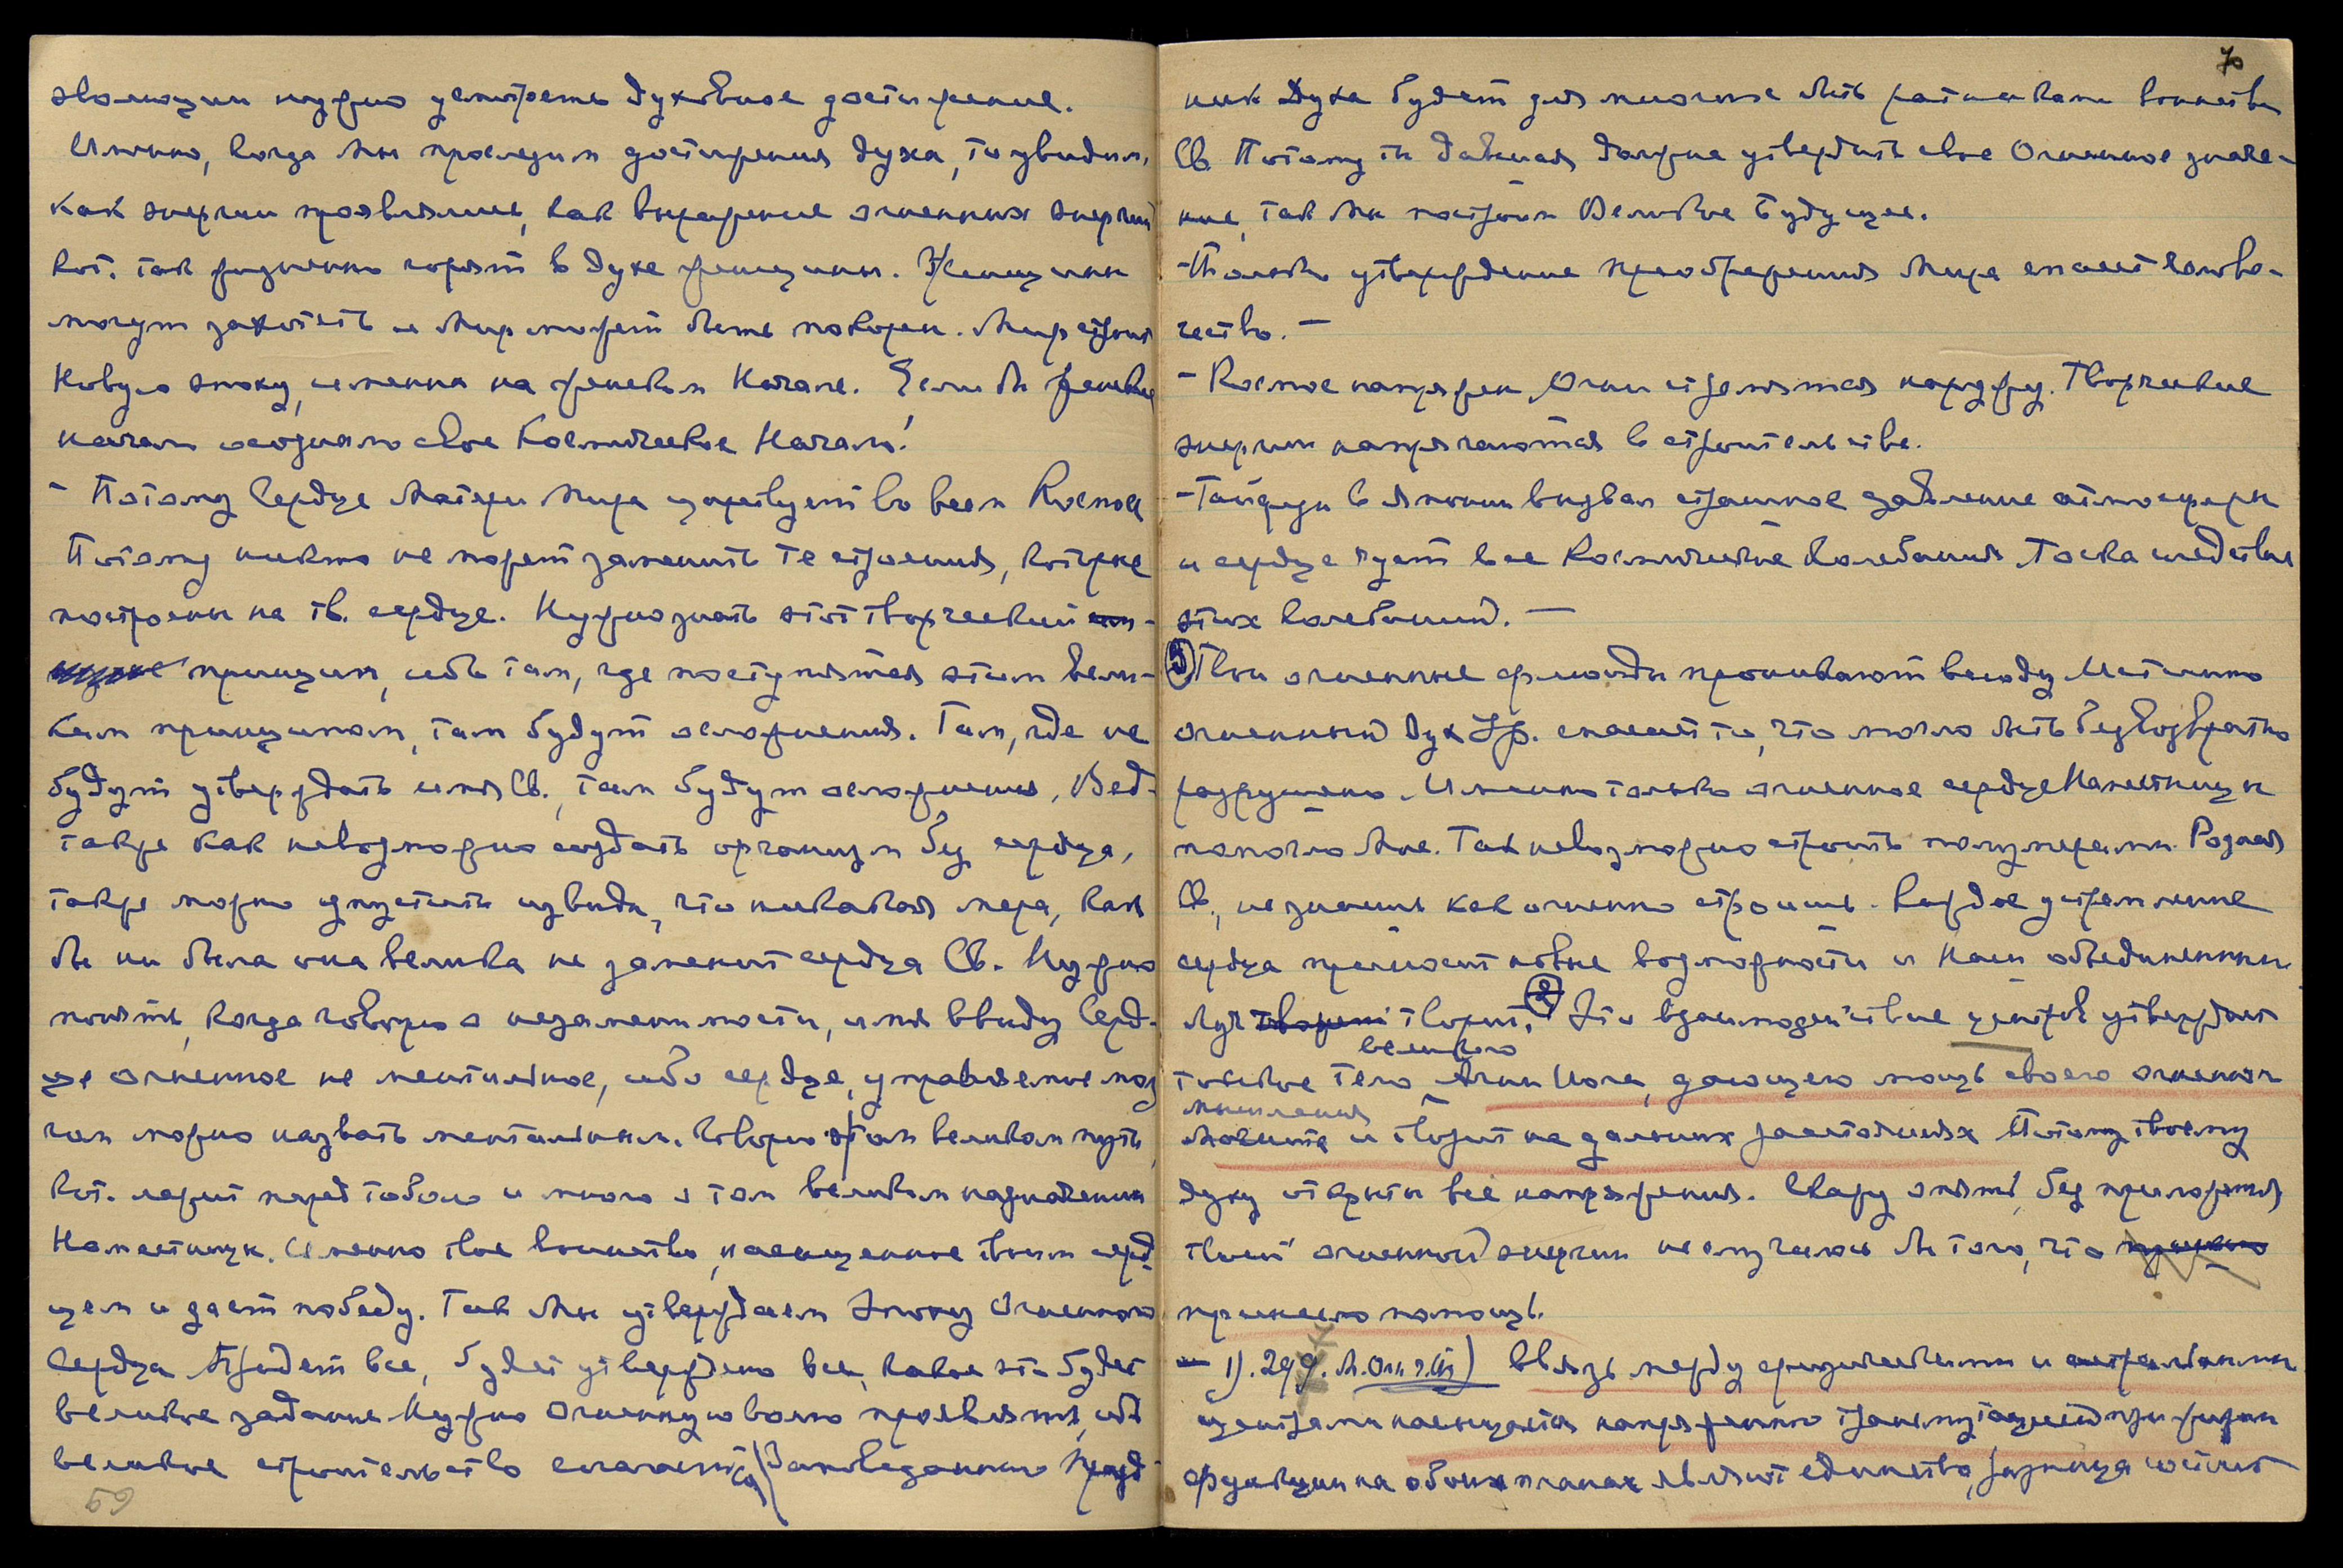 эволюции нужно усмотреть духовное достижение.
Именно, когда мы проследим достижения духа, то увидим,
как энергии проявлялись, как выражение огненных энергий
кот. так жизненно горят в духе женщины. Женщины
могут захотеть и мир может быть покорен. Мир строит
Новую эпоху, именно на женском Начале. Если бы женское
начало осознало свое Космическое Начало!
- Потому Сердце Матери Мира царствует во всем Космосе
Потому никто не может заменить те строения, которые
построены на тв. сердце. Нужно знать этот творческий
принцип, ибо там, где поступятся этим вели-
ким принципом, там будут осложнения. Там, где не
будут утверждать имя Св., там будут осложнения. Вед-
также как невозможно создать организм без сердца,
также можно упустить из виду, что никакая мера, как
бы ни была она велика не заменит сердца Св. Нужно
понять, когда говорю о незаменимости, имея ввиду Серд-
це огненное не ментальное, ибо сердце, управляемое моз
гом можно назвать ментальным. Говорю о том великом пути,
кот. лежит перед тобою и много о том великом назначении
Наместницы. Именно твое воинство, насыщенное твоим серд
цем и дает победу. Так Мы утверждаем Эпоху Огненного
Сердца Придет все, будет утверждено все, какое это будет
великое задание Нужно Огненную волю проявлять, ибо
великое строительство слагается Заповеданный
69
70
ник Духа будет для многих быть ратниками воинства
Св. Потому ты давшая должна утвердить свое Огненное значе-
ние, так Мы построим Великое Будущее.
- Только утверждение преображения Мира спасет челове-
чество. —
- Космос напряжен, Огни стремятся наружу. Творческие
энергии напрягаются в строительстве.
- Тайфун в Японии вызвал страшное давление атмосферы
и сердце чует все Космические колебания. Тоска следствие
этих колебаний. —
3) Твои огненные флюиды проникают всюду. Истинно
огненный дух Ур. спасает то, что могло быть безвозвратно
разрушено. Именно только огненное сердце Наместницы
помогло Мне. Так невозможно строить полумерами. Родная
Св., не знаешь как огненно строишь. Каждое устремление
сердца приносит новые возможности и Наш объединенный
Луч творит творит. 2) Это взаимодействие центров утверждает
великого
тонкое тело Агни Йога, дающего мощь своего огненного
мышления
и творит на дальних расстояниях Потому твоему
духу открыты все напряжения. Скажу опять, без приложения
твоей огненной энергии не случилось бы того, что
принесло помощь.
— 1). 299. М. Огн. ч. III) Связь между физическими и астральными
центрами насыщается напряженною трансмутацией при
функции на обоих планах являют единство, разница состоит